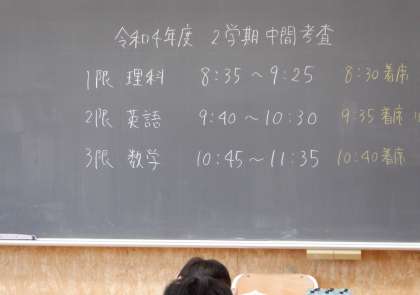 令和4年度 2学期中間考査
1限 理科 8:35～9:25 8:30着席
2限 英語 9:40～10:30 9:35着席
3限 数学 10:45～11:35 10:40着席